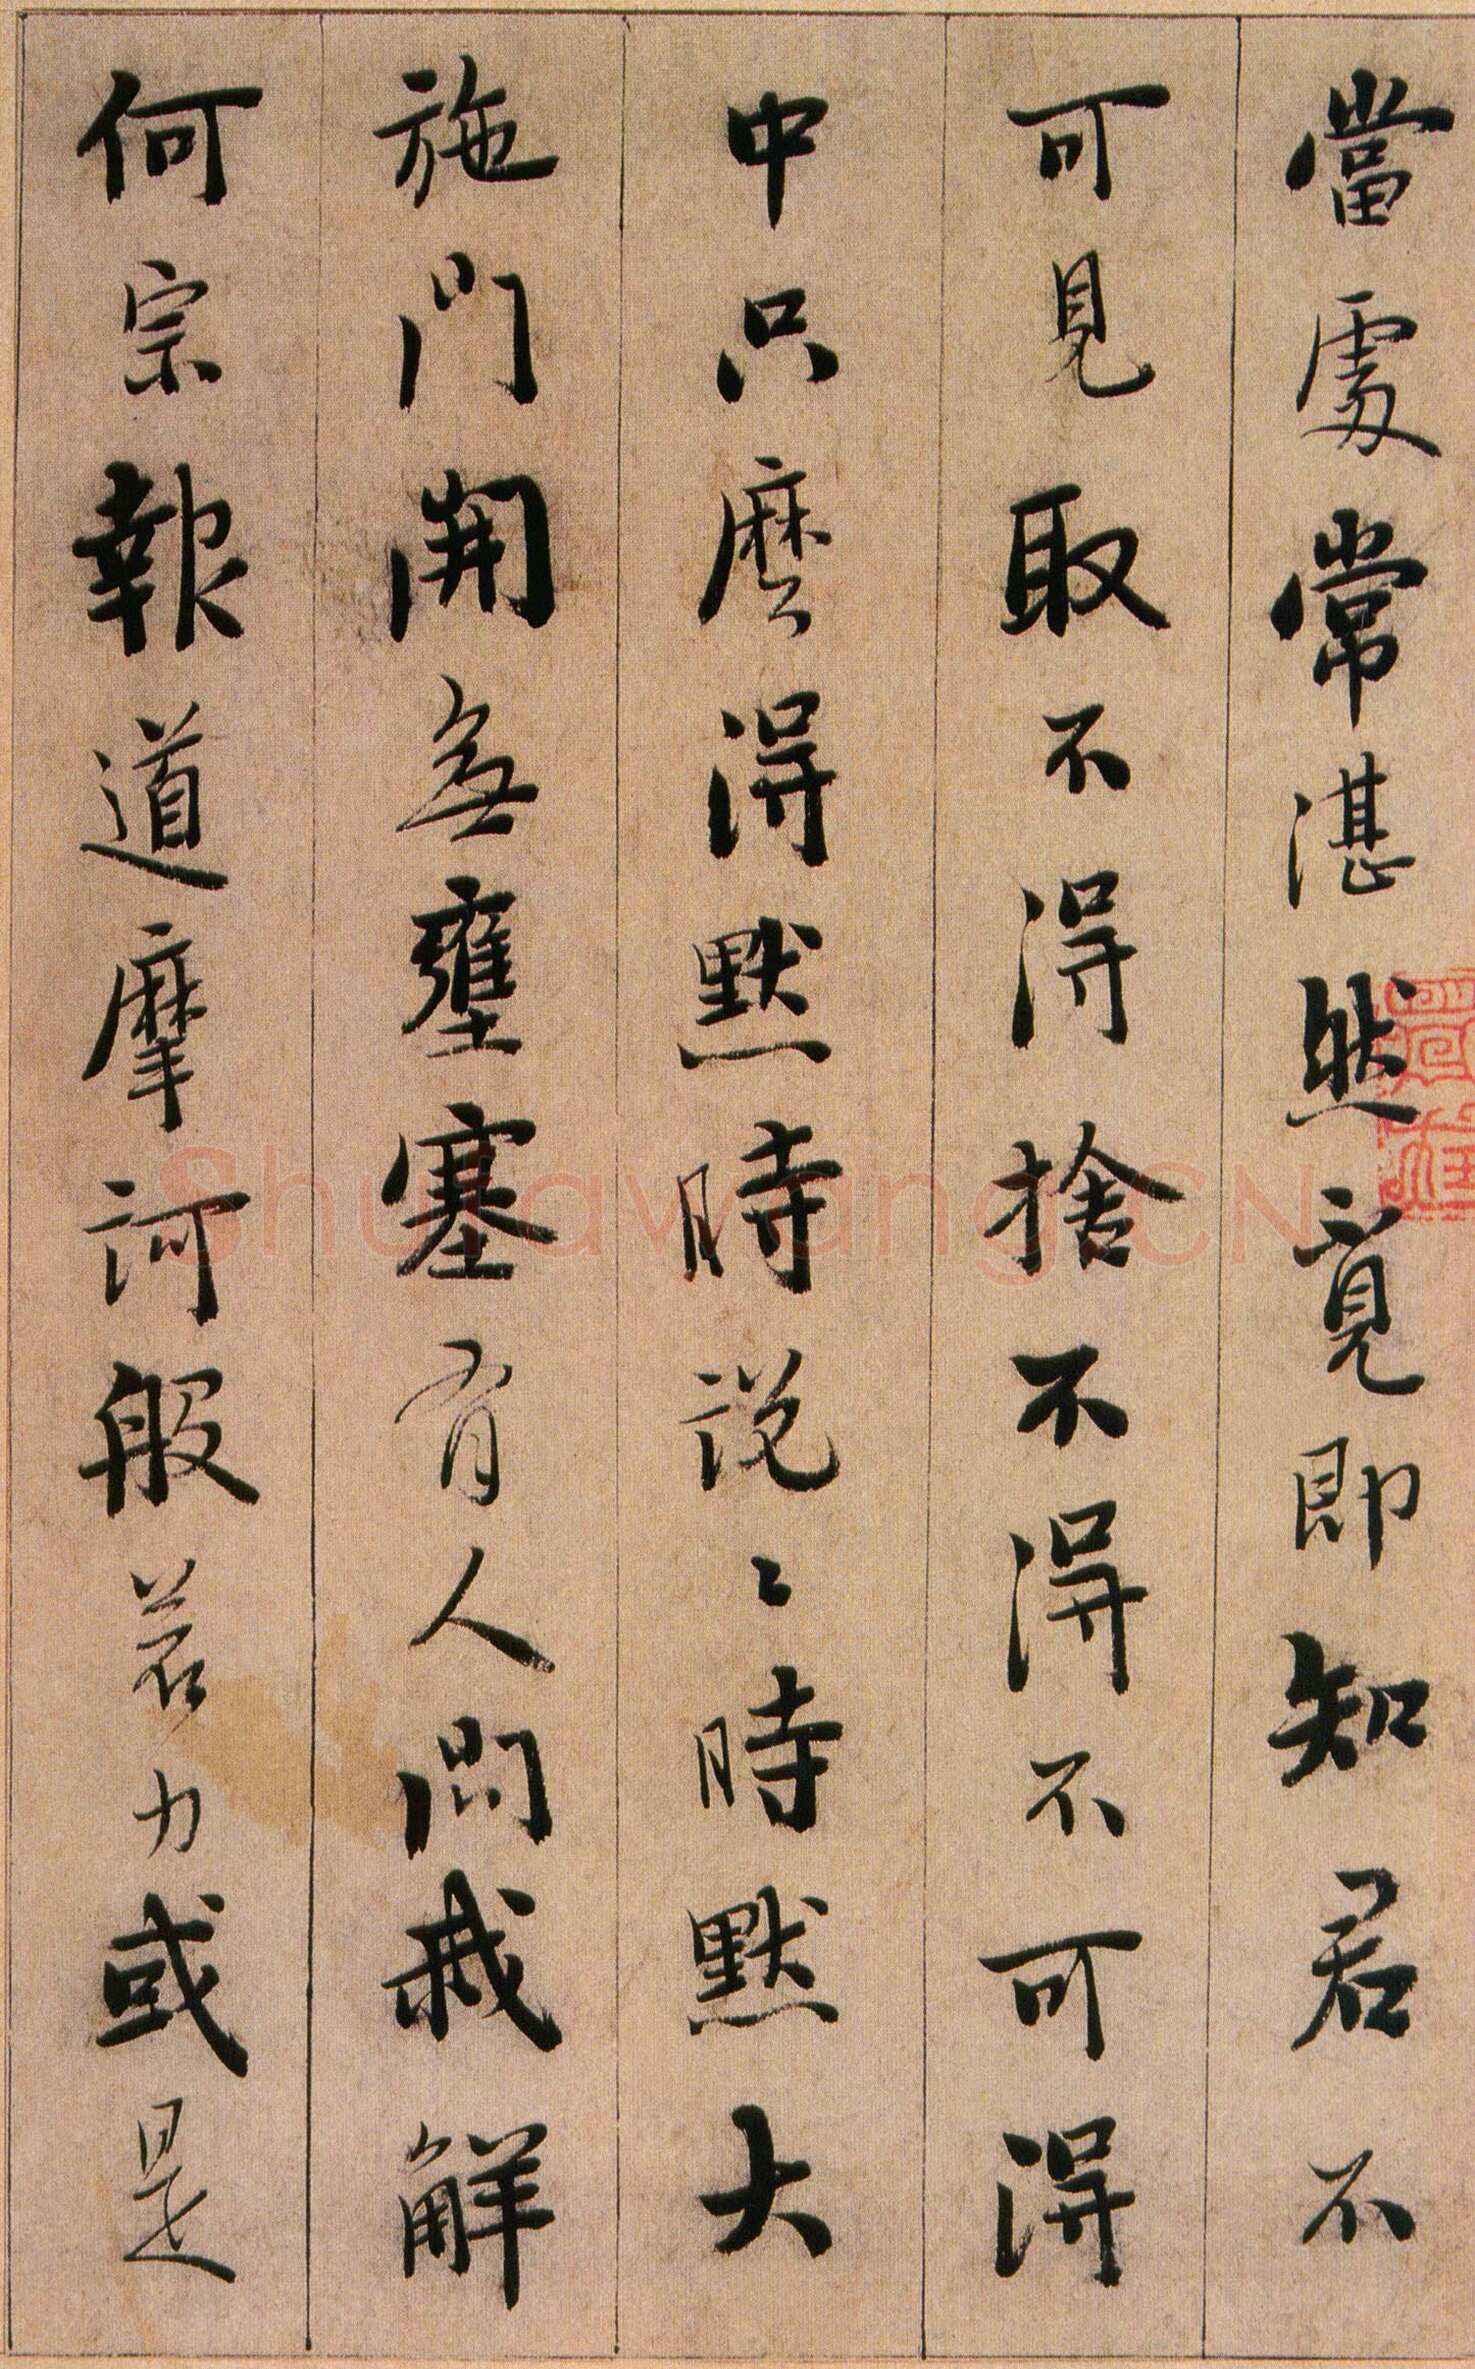 當處常湛然覓即知君不
可見取不得捨不得不可得
中只麼得默時說〻時默大
施門開無壅塞有人問我解
何宗報道摩訶般若力或是
Shufawang.CN